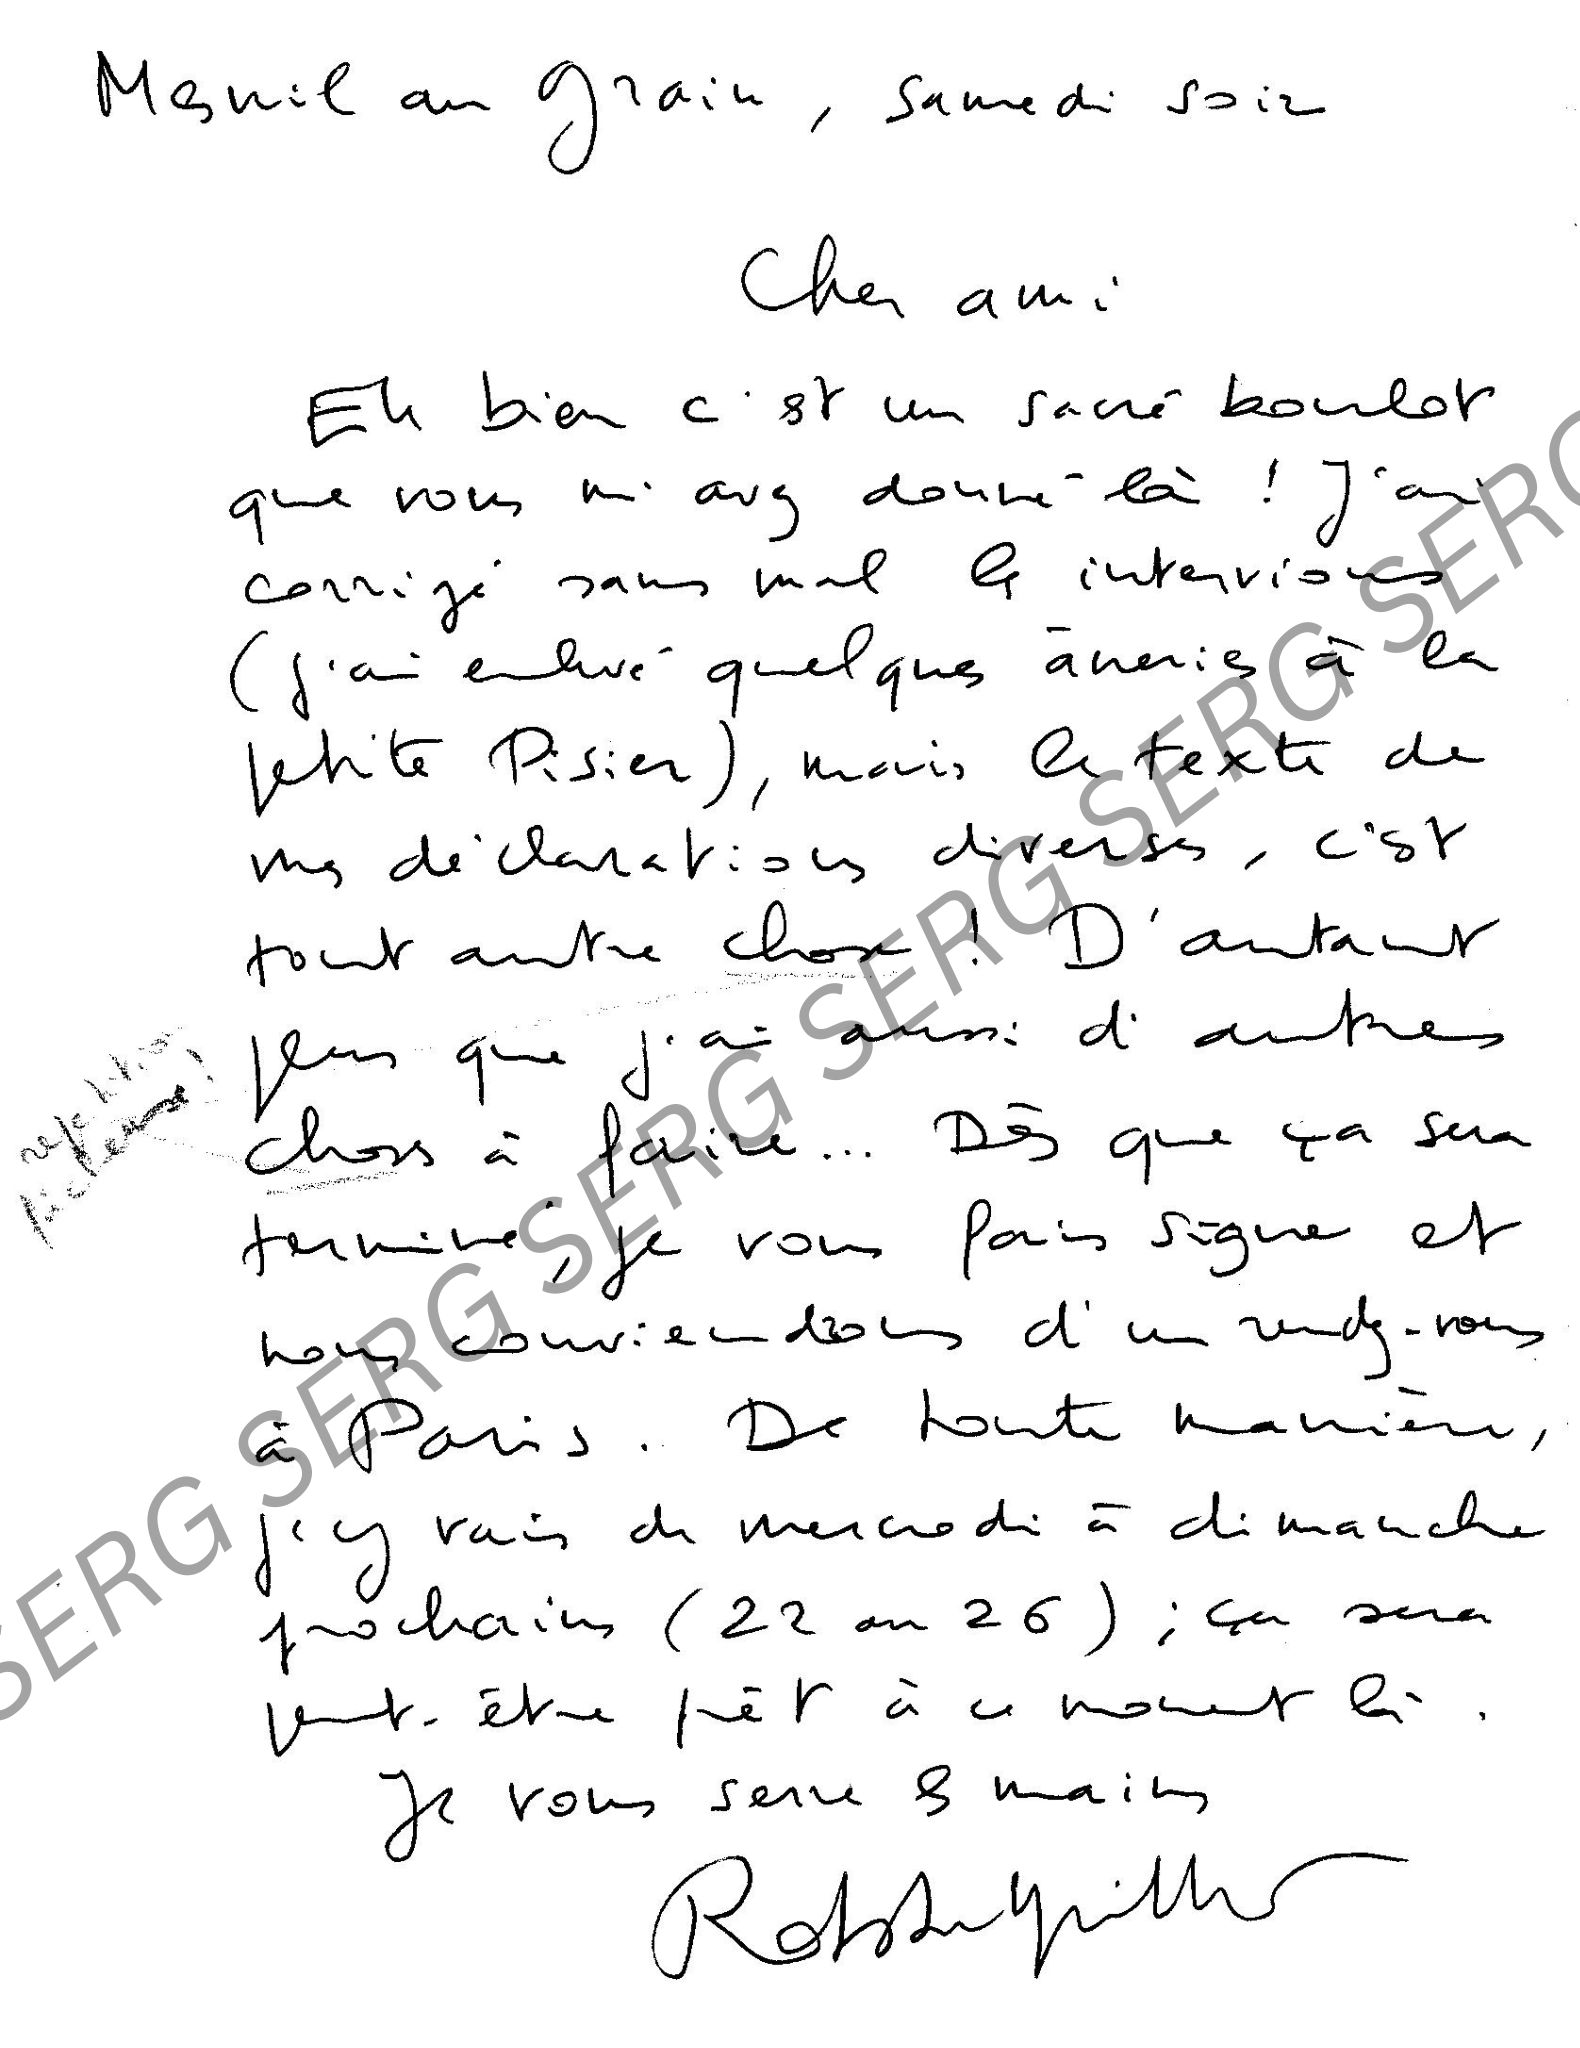 Mesnil au Grain, samedi soir
Cher ami
Eh bien c'est un sacré boulot
que vous m'avez donné là ! J'ai
corrigé sans mal les interviews
(j'ai enlevé quelques âneries à la
petite Pisier), mais le texte de
mes déclarations diverses, c'est
tout autre chose ! D'autant
plus que j'ai aussi d'autres
choses à faire... Dès que ça sera
terminé, je vous fais signe et
nous conviendrons d'un rendez-vous
à Paris. De toute manière,
j'y vais de mercredi à dimanche
prochains (22 au 26) ; ça sera
peut-être prêt à ce moment là.
Je vous serre les mains
Robbe-Grillet
répétition
SERG SERG SERG SERG SERG SERG SERG SERG SERG